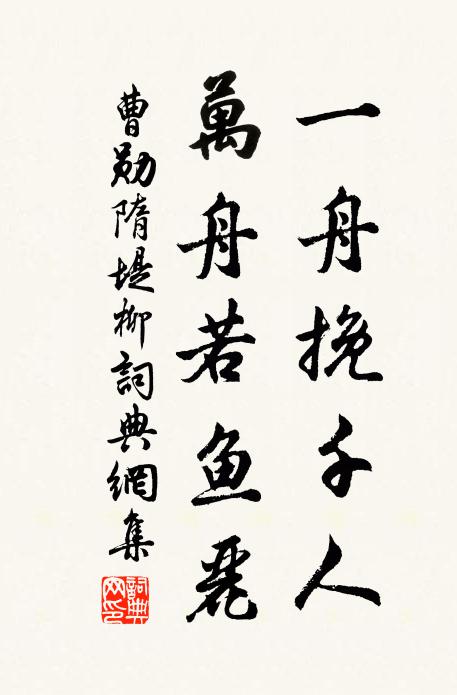 一舟挽千人
萬舟若魚麗
曹勛隋堤柳詞典網集
詞典網印